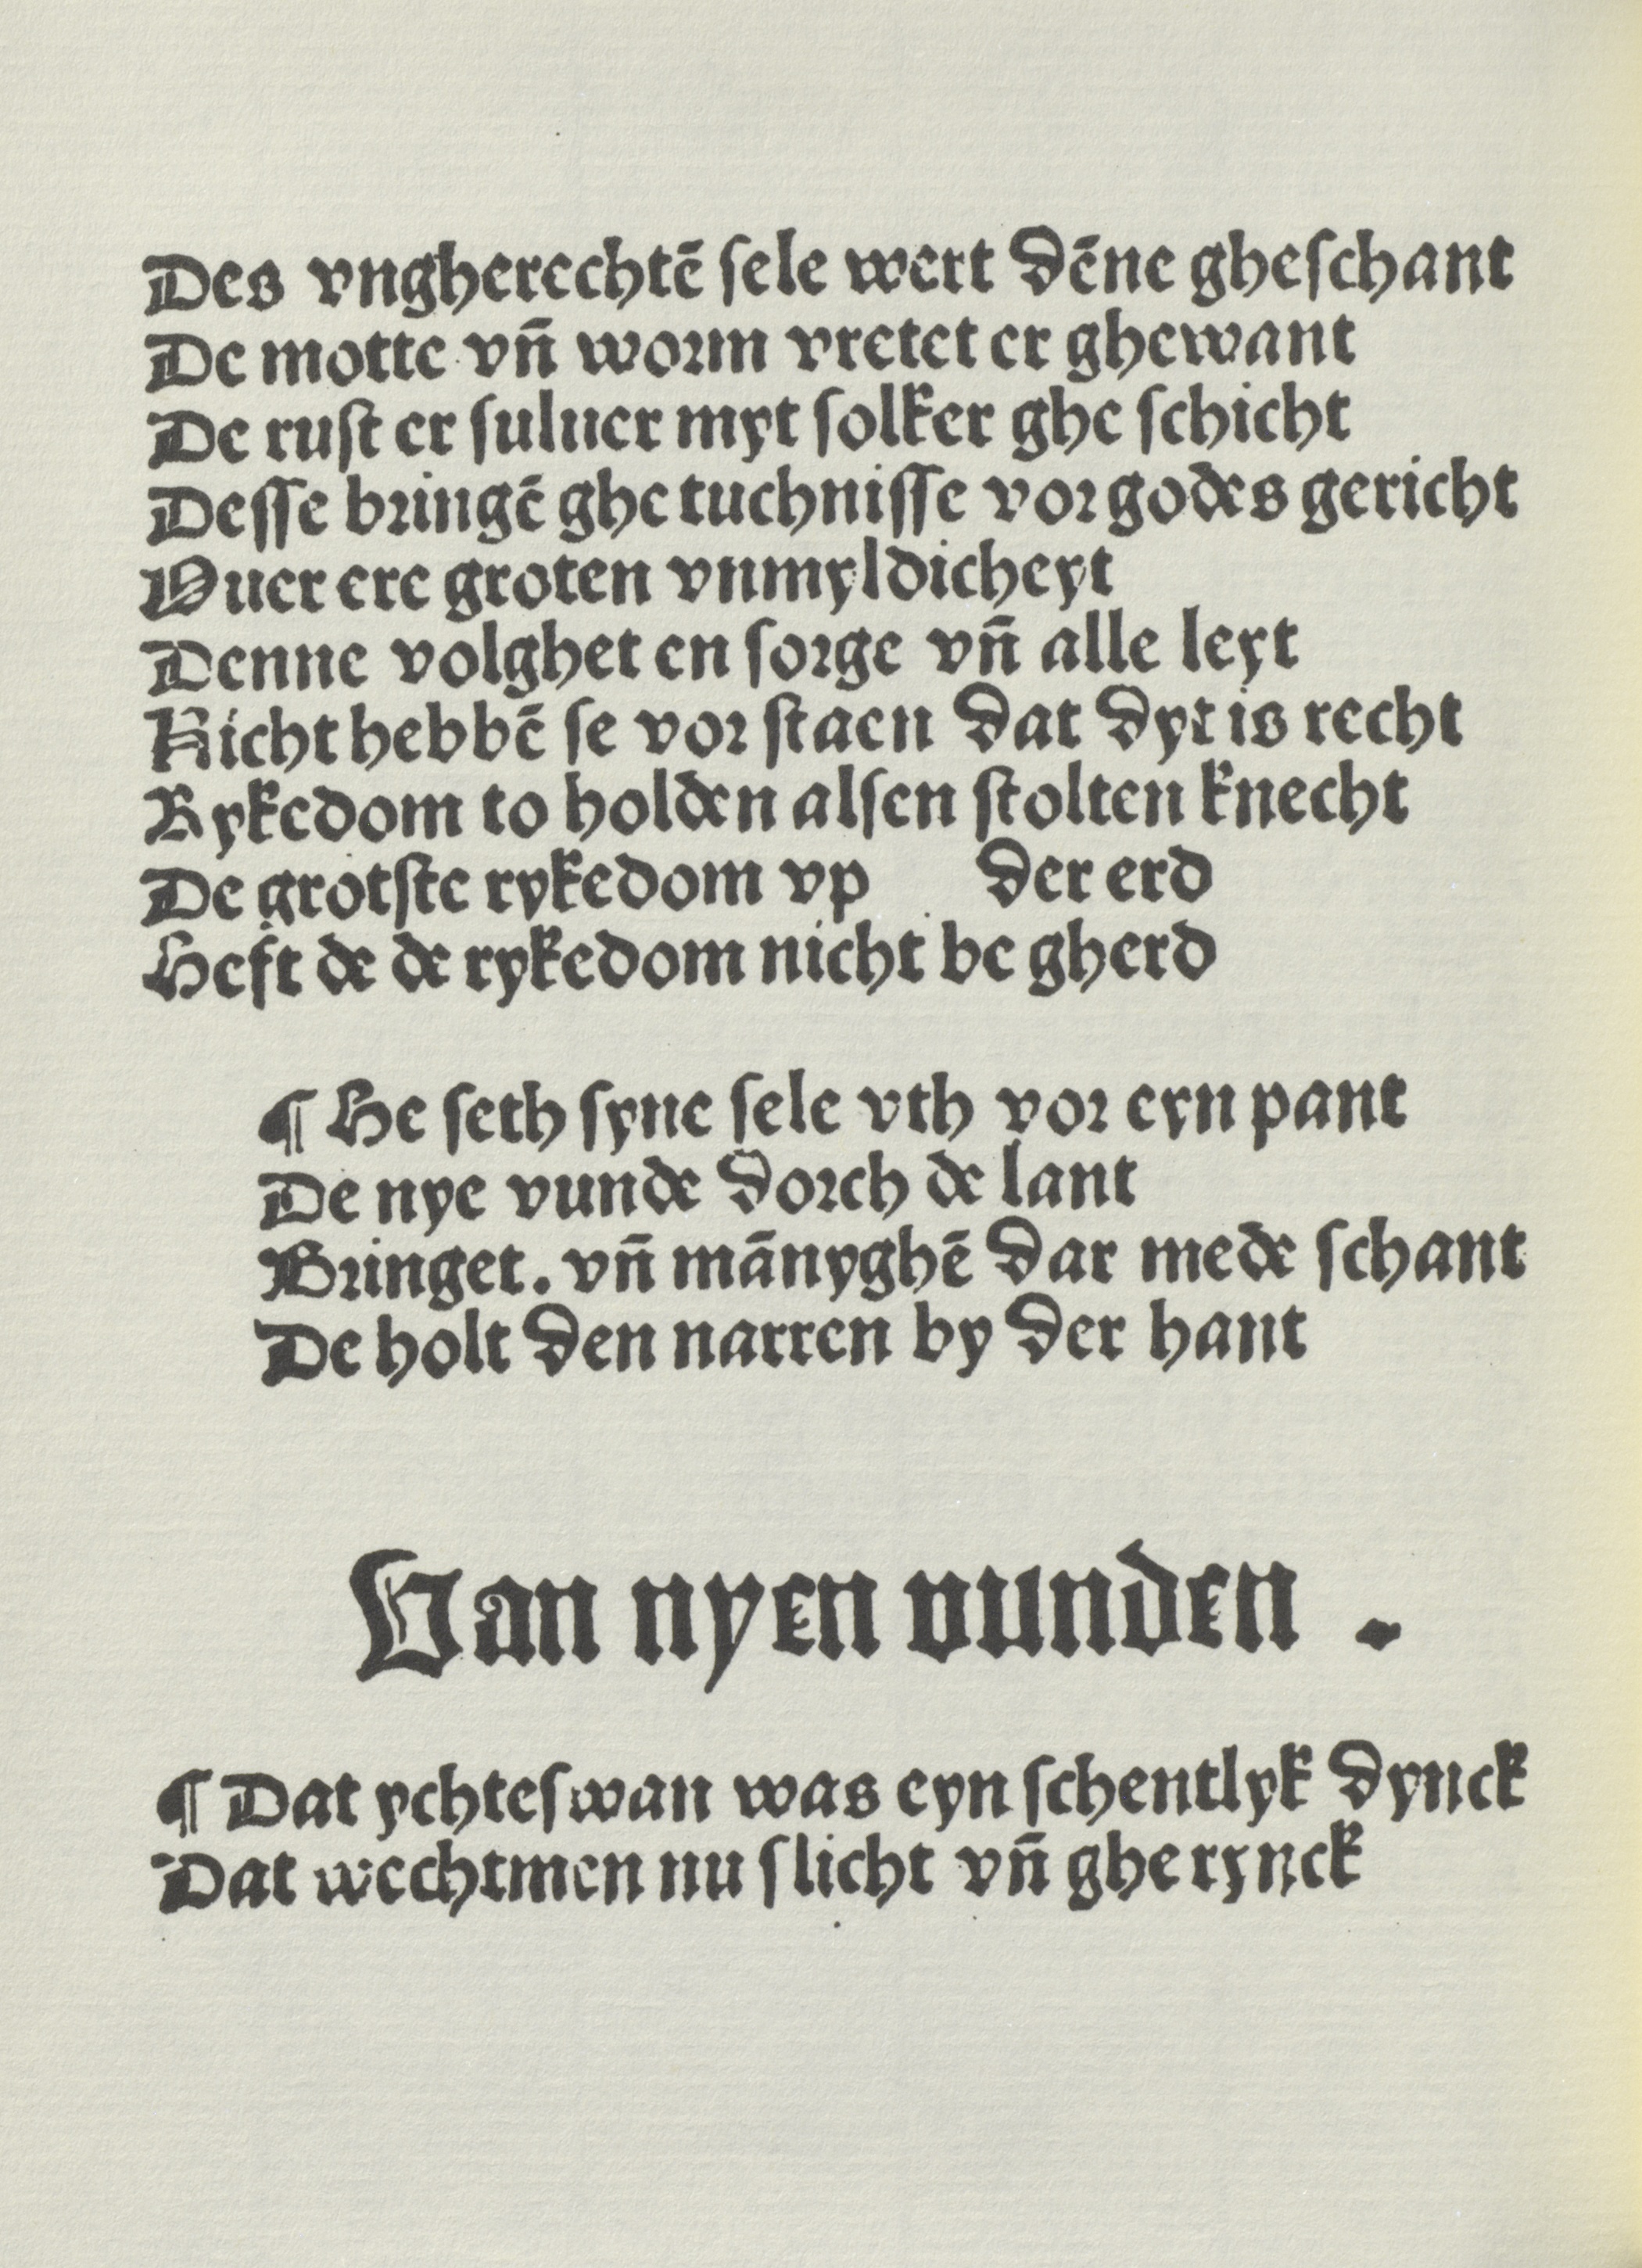 Des vngherechtē ſele wert dēne gheſchant
De motte vn̄ worm vretet er ghewant
De ruſt er ſuluer myt ſolker ghe ſchicht
Deſſe bringē ghe tuchniſſe vor godes gericht
Ouer ere groten vnmyldicheyt
Denne volghet en ſorge vn̄ alle leyt
Nicht hebbē ſe vor ſtaen dat dyt is recht
Rykedom to holden alſen ſtolten knecht
De grotſte rykedom vp der erd
Heft de de rykedom nicht be gherd
¶ He ſeth ſyne ſele vth vor eyn pant
De nye vunde dorch de lant
Bringet. vn̄ mānyghē dar mede ſchant
De holt den narren by der hant
Van nyen vunden .
¶ Dat ychteſwan was eyn ſchentlyk dynck
Dat wechtmen nu ſlicht vn̄ ghe rynck